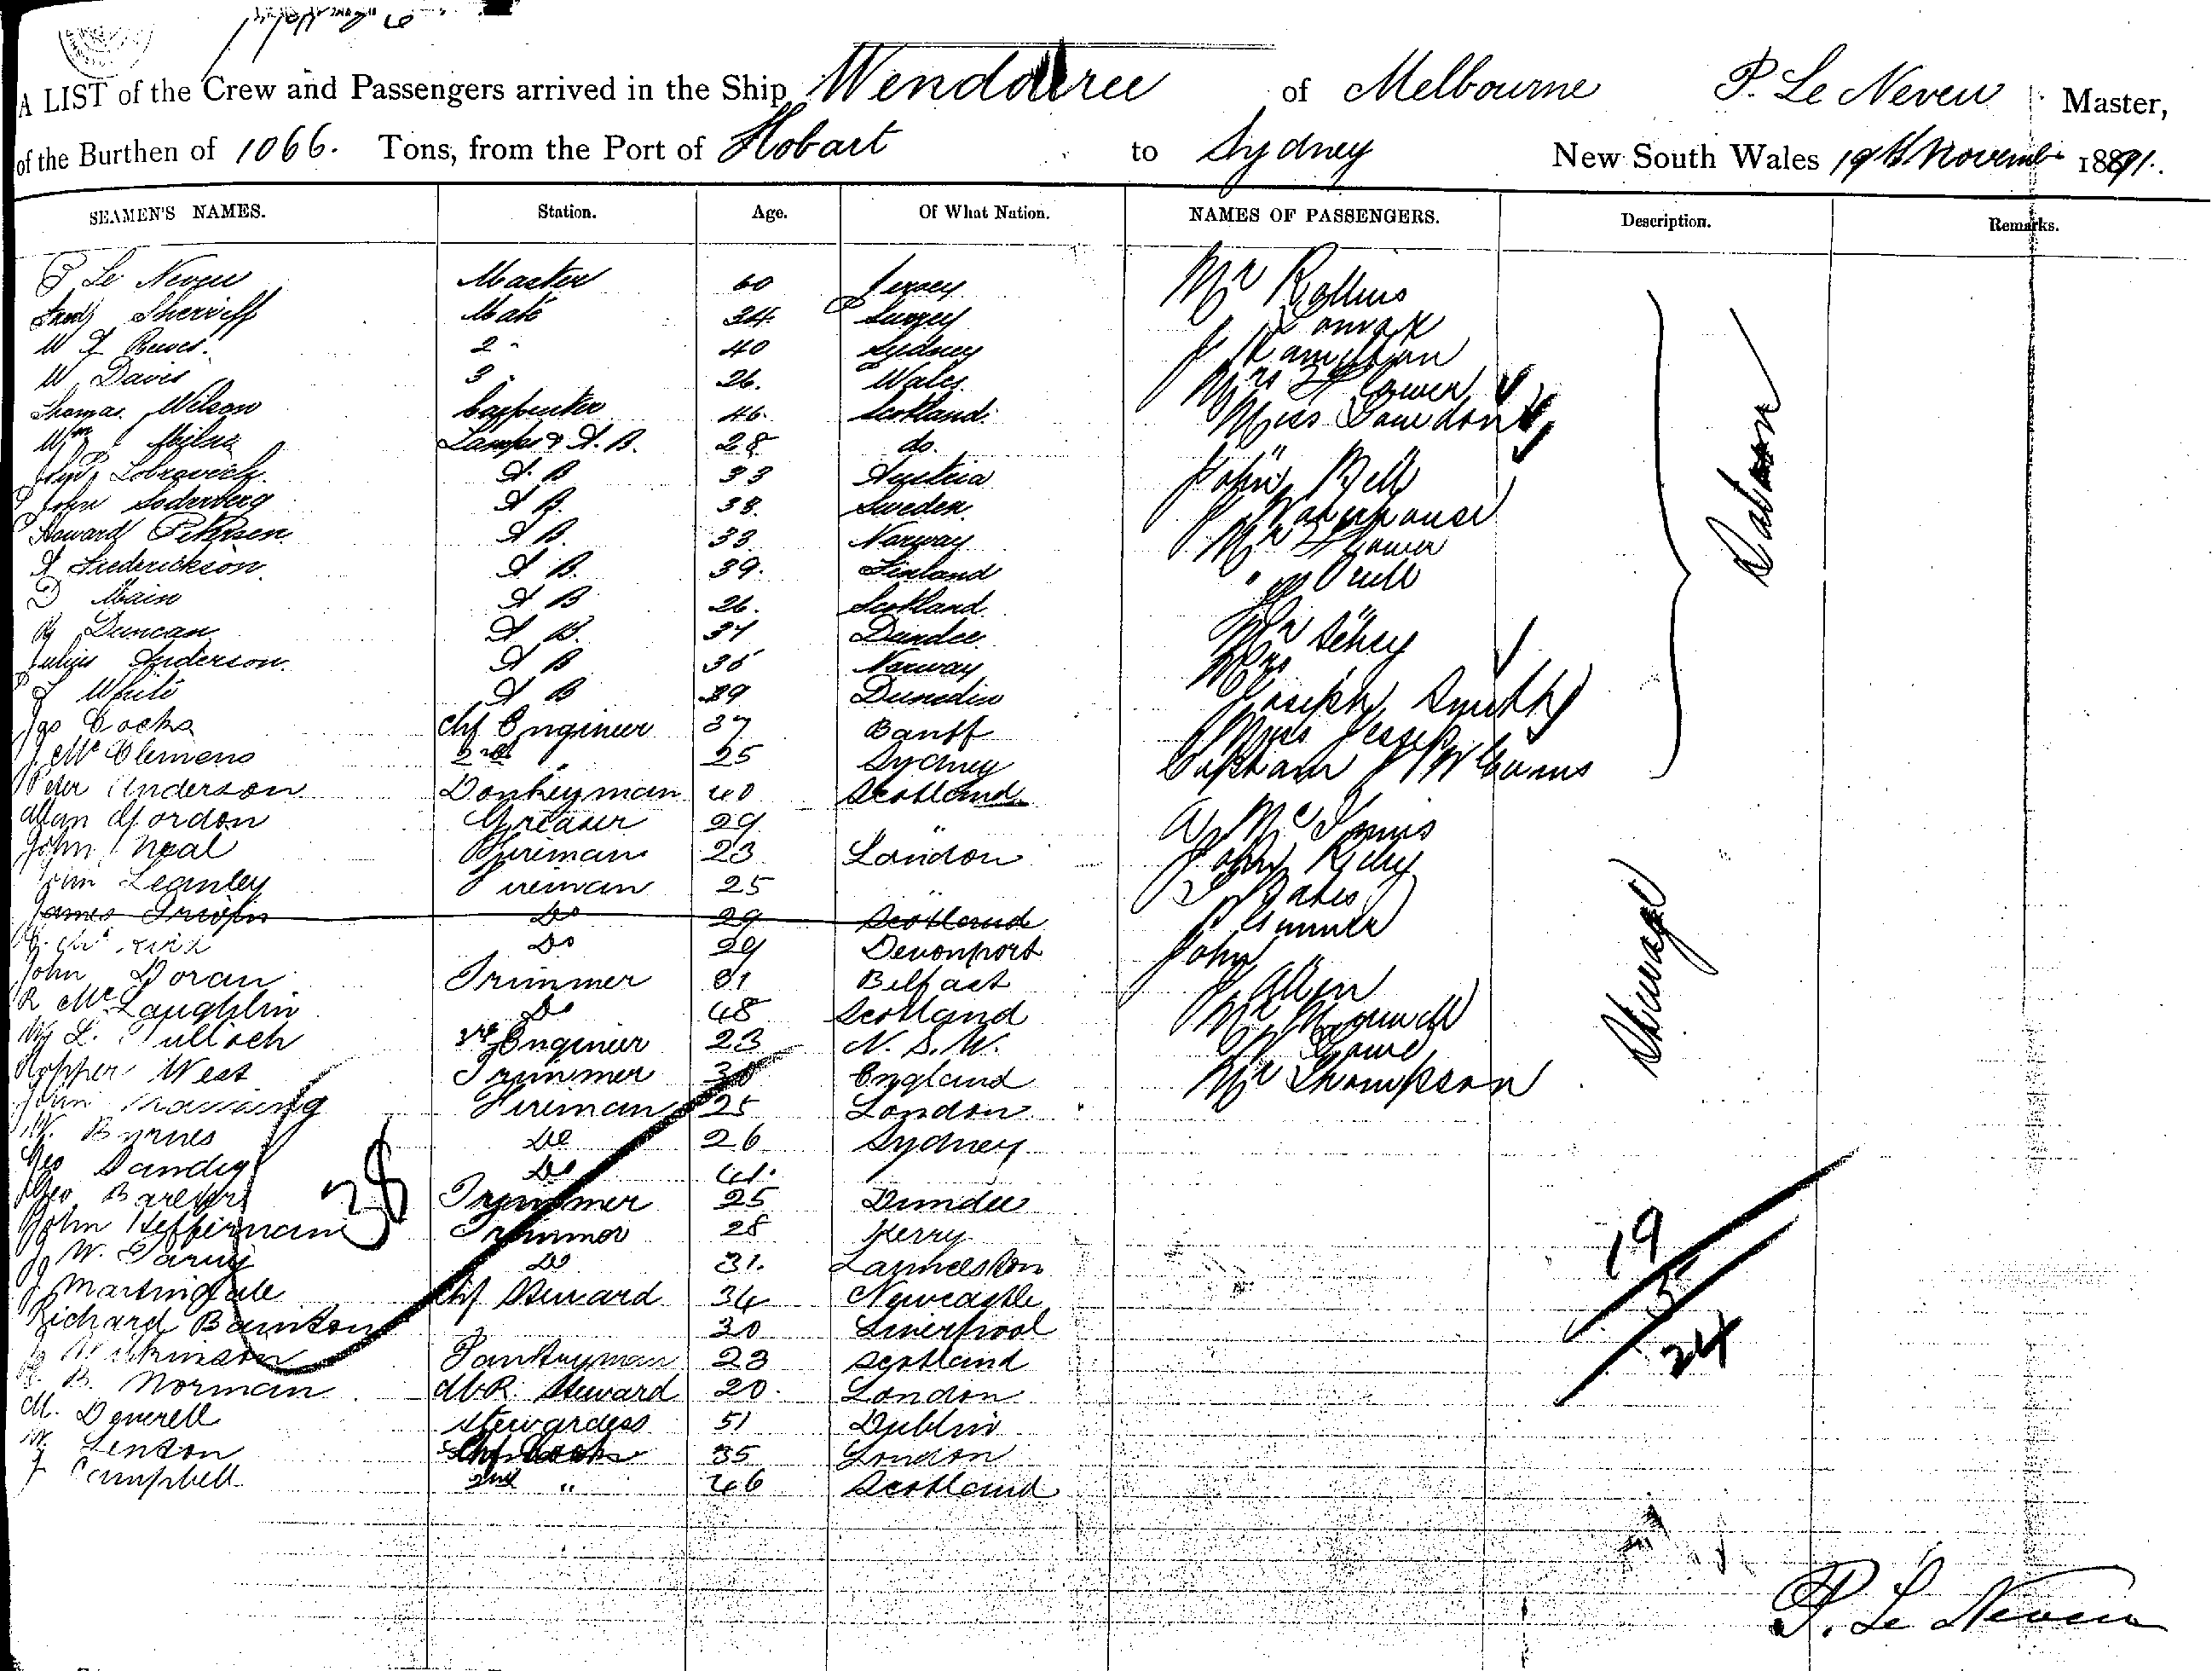 A LIST of the Crew and Passengers arrived in the Ship Wendouree of Melbourne P. Le Neveu Master,
of the Burthen of 1066. Tons, from the Port of Hobart to Sydney New South Wales 19th November 1891.
SEAMEN'S NAMES. Station. Age. Of What Nation. NAMES OF PASSENGERS. Description. Remarks.
P Le Neveu Master 60 Jersey
Fredk Sherriff Mate 34 Surrey
W J Reeves. 2 " 40 Sydney
W Davis 3 " 26. Wales
Thomas Wilson Carpenter 46. Scotland.
Wm Milne Lamps & A.B. 28 do.
Lobrovich A.B 33 Austria
John Soderberg A B. 38. Sweden.
Howard Petersen A B. 33 Norway
A Frederickson A B. 39. Finland
D Main A B 26. Scotland
Duncan A B. 34 Dundee
Julius Anderson A B 36 Norway
J White A B 39 Dunedin
Jas Cocks Chf Engineer 37 Banff
J McClemens 2nd " 25 Sydney
Peter Anderson Donkeyman 40 Scotland
Allan Gordon Greaser 29 "
John Neal Fireman 23 London
John Leanley Fireman 25 "
James Do 29 Scotland
Do 29 Devonport
John Doran Trimmer 31 Belfast
R McLaughlin Do 48 Scotland
Wm L. Tulloch 3rd Engineer 23 N.S.W.
Hopper West Trimmer 30 England
John Fireman 25 London
W. Byrnes Do 26 Sydney
Geo Sandig Do 41.
Geo Barker Trimmer 25 Dundee
John Heffernan Trimmer 28 Kerry
J W. Do 31. Launceston
J Martingale Chf Steward 34 Newcastle
Richard Bainton 30 Liverpool
Wilkinson Pantryman 23 Scotland
B. Norman M.R. Steward 20. London
M. Deverell Stewardess 51 Dublin
W. Lenton Chf Cook 35 London
J Campbell 2nd " 46 Scotland
38
Mr Rollins
Lomax
J Hamilton
Mrs Flower
Miss
John Bell
J Waterhouse
Mr Flower
"
Mr
Mrs "
Joseph Smith
Miss Jessep
Captain J Williams
Saloon
A McInnis
John Riley
Oates
John "
J Allen
Mr
Mr Thompson
Steerage
19
5
24
P. Le Neveu